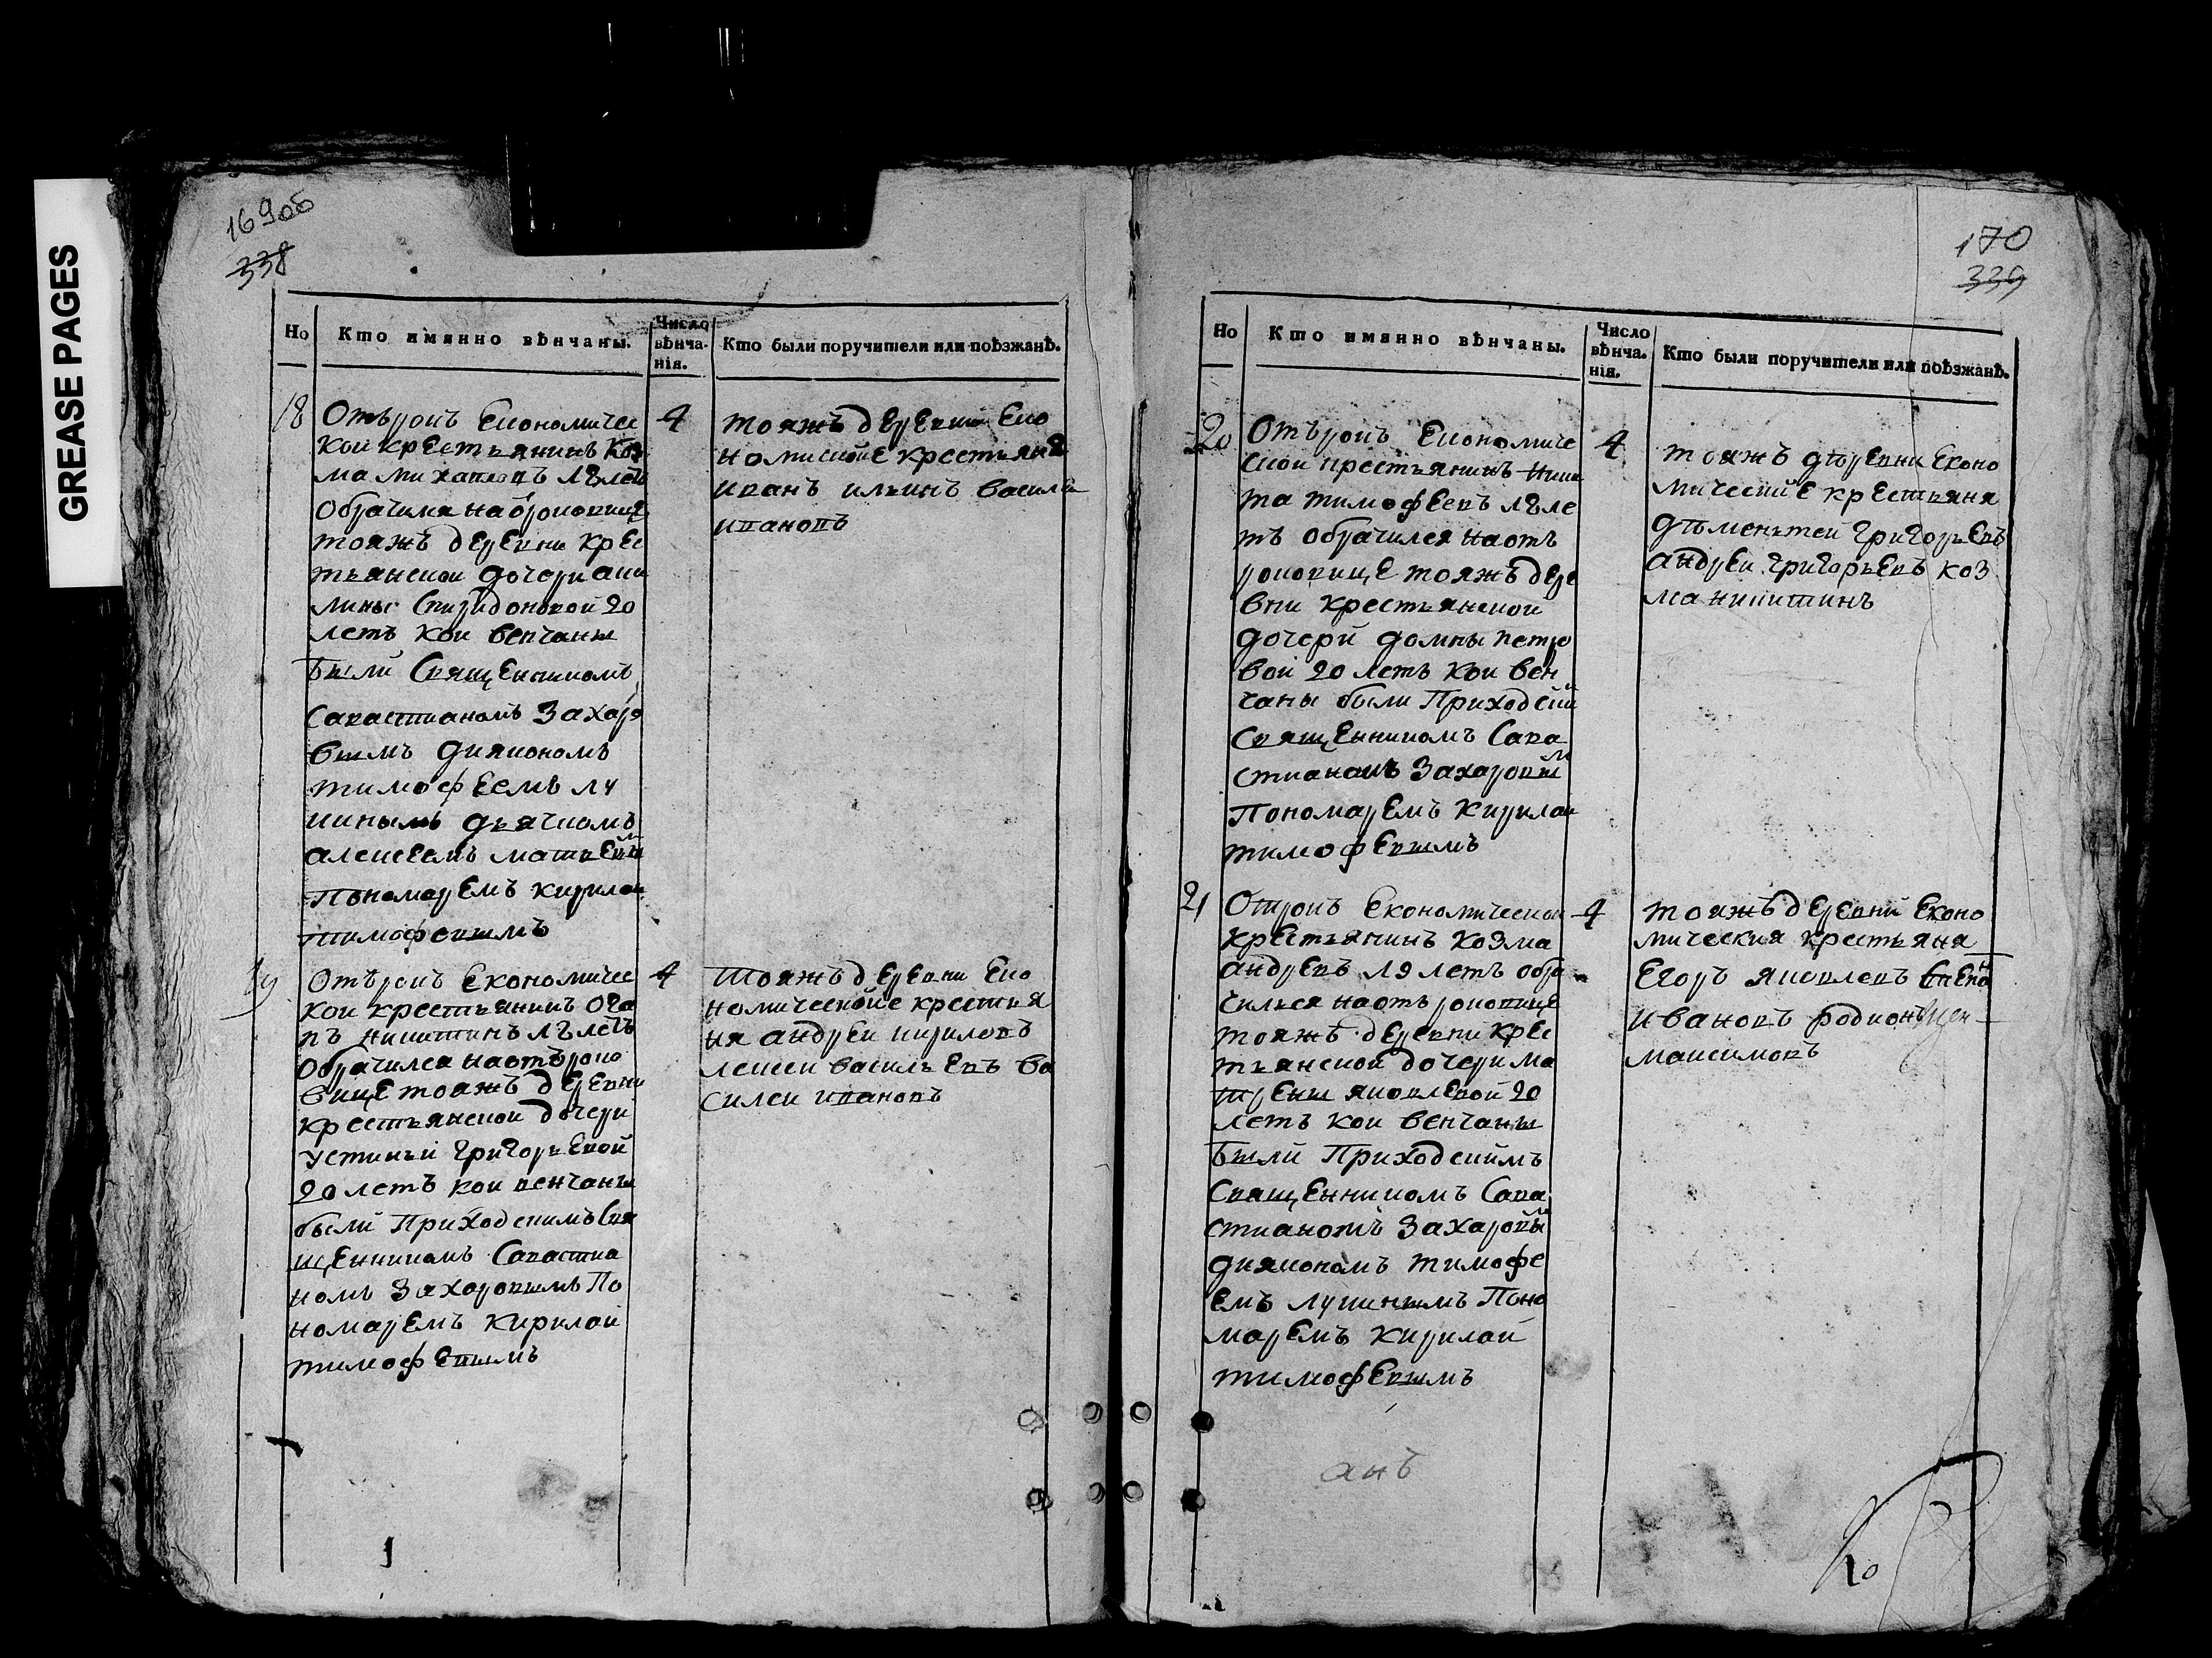 GREASE PAGES
169об
338
Но
Кто имянно вѣнчаны.
Число вѣнча-нія.
Кто были поручители или поѣзжанѣ.
18
Отърокъ Економичес
кои крестьянинъ Коз
ма
Обрачился на отроковице
тояжъ деревни крес
тьянской дочери аки
лины Спиридоновой 20
летъ кои венчаны
были Священникомъ
Савастианомъ Захаро
вымъ диякономъ
тимофеемъ лу
кинымъ дьячкомъ
алексеемъ матвеевым
Пономаремъ кирилои
тимофевымъ
4
тояжъ деревни Еко
номиской крестьяня
иванъ илинъ Василеи
ивановъ
19
Отърокъ Економичес
кои крестьянинъ
никитинъ летъ
Обрачился на отъроко
вице тояжъ деревни
крестьянской дочери
устиньи григорьевой
20 летъ кои венчаны
были Приходскимъ Свя
щенникомъ Савастиа
номъ Захаровымъ По
номаремъ кирилои
тимофевымъ
4
тояжъ деревни Еко
номическойе крестья
ня андреи кириловъ
лексеи васильевъ ва
силеи ивановъ
170
339
Но
Кто имянно вѣнчаны.
Число вѣнча-нія.
Кто были поручители или поѣзжанѣ.
20
Отърокъ Економиче
скои крестьянинъ Ники
та тимофеевъ ле
тъ обрачился на отъ
роковице тояжъ дере
вни крестьянской
дочери домны петро
вой 20 летъ кои вен
чаны были Приходский
Священникомъ Сава
стианомъ Захаровым
Пономаремъ Кирилои
тимофевымъ
4
тояжъ деревни Еконо
мический крестьяня
дѣментей григорьевъ
андреи григорьевъ коз
ма никитинъ
21
Отрокъ Економической
крестьянинъ козма
андревъ летъ обра
чился на отъроковице
тояжъ деревни крес
тьянской дочери ма
трены яковлевой 20
летъ кои венчаны
были Приходскимъ
Священникомъ Сава
стианомъ Захаровым
диякономъ тимофе
емъ лукинымъ Поно
маремъ кирилой
тимофевымъ
4
тояжъ деревни Еконо
мическия крестьяня
Егоръ яковлевъ
Ивановъ родионъ
максимовъ
анъ